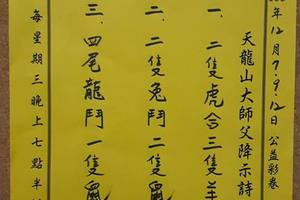 年12月7.9.12日公益彩卷
天龍山大師父降示詩
一、二隻虎含三隻羊
二、二隻兔鬥二隻鼠
三、四尾龍鬥一隻鼠
每星期三晚上七點半